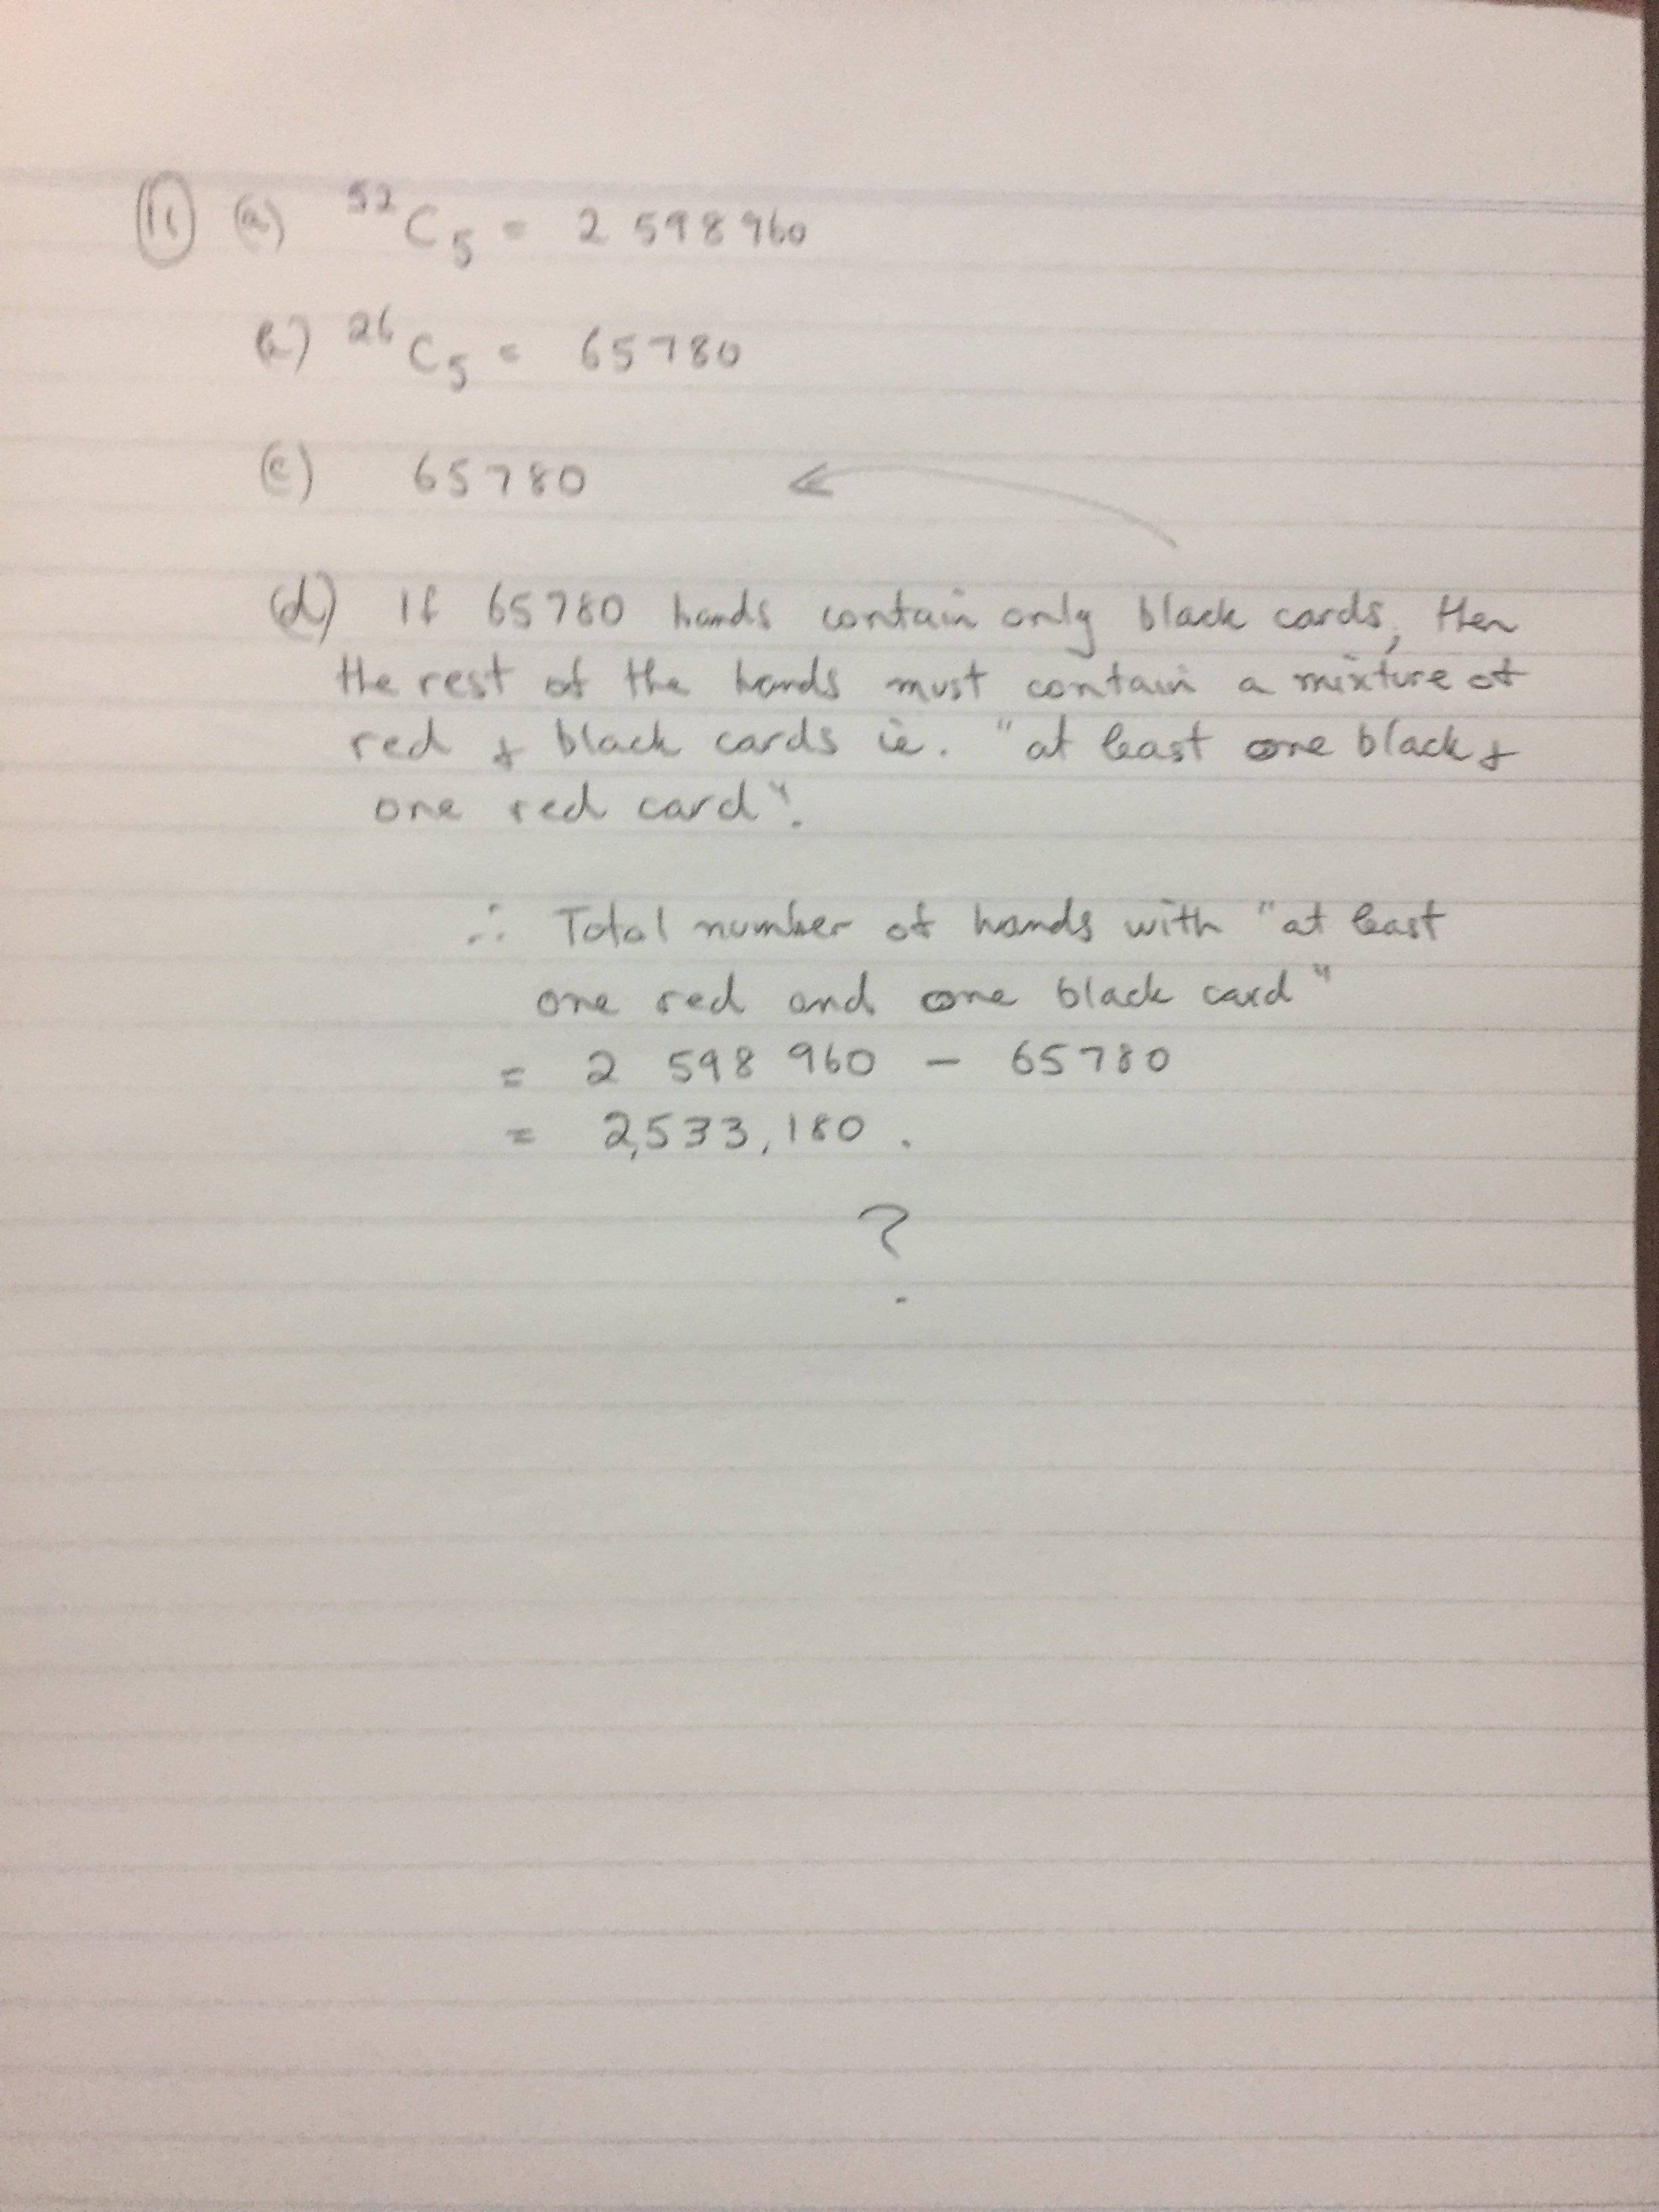 11 (a) ⁵²C₅ = 2 598 960
b) ²⁶C₅ = 65780
(c) 65780
(d) If 65780 hands contain only black cards, then
the rest of the hands must contain a mixture of
red & black cards ie. "at least one black &
one red card".
∴ Total number of hands with "at least
one red and one black card"
= 2 598 960 - 65780
= 2,533,180.
?